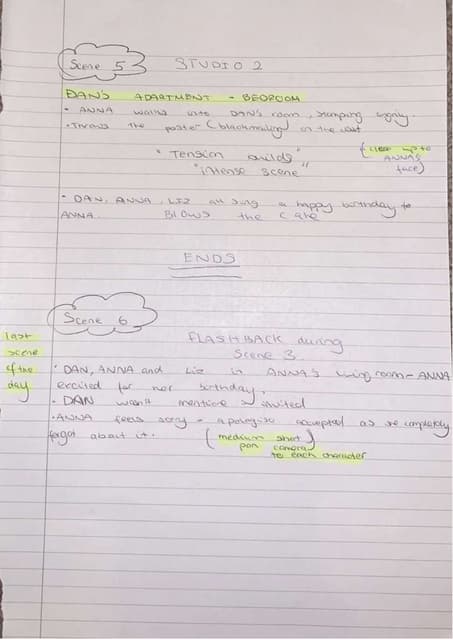 Scene 5 STUDIO 2
DAN'S APARTMENT - BEDROOM
• ANNA walks into DAN'S room, stumping angrily.
• Throws the poster (blackmailing) on the
(close up to
ANNA'S
face)
"Tension builds"
"intense scene
• DAN, ANNA, LIZ all sing a happy birthday to
ANNA. BLOWS the cake
ENDS
Scene 6
FLASHBACK during
Scene 3
last
scene
of the
day
• DAN, ANNA and Liz in ANNA'S living room - ANNA
excited for her birthday.
• DAN wasn't mentioned invited
• ANNA feels sorry - apologise accepted as she completely
forgot about it.
(medium shot)
pan camera
to each character